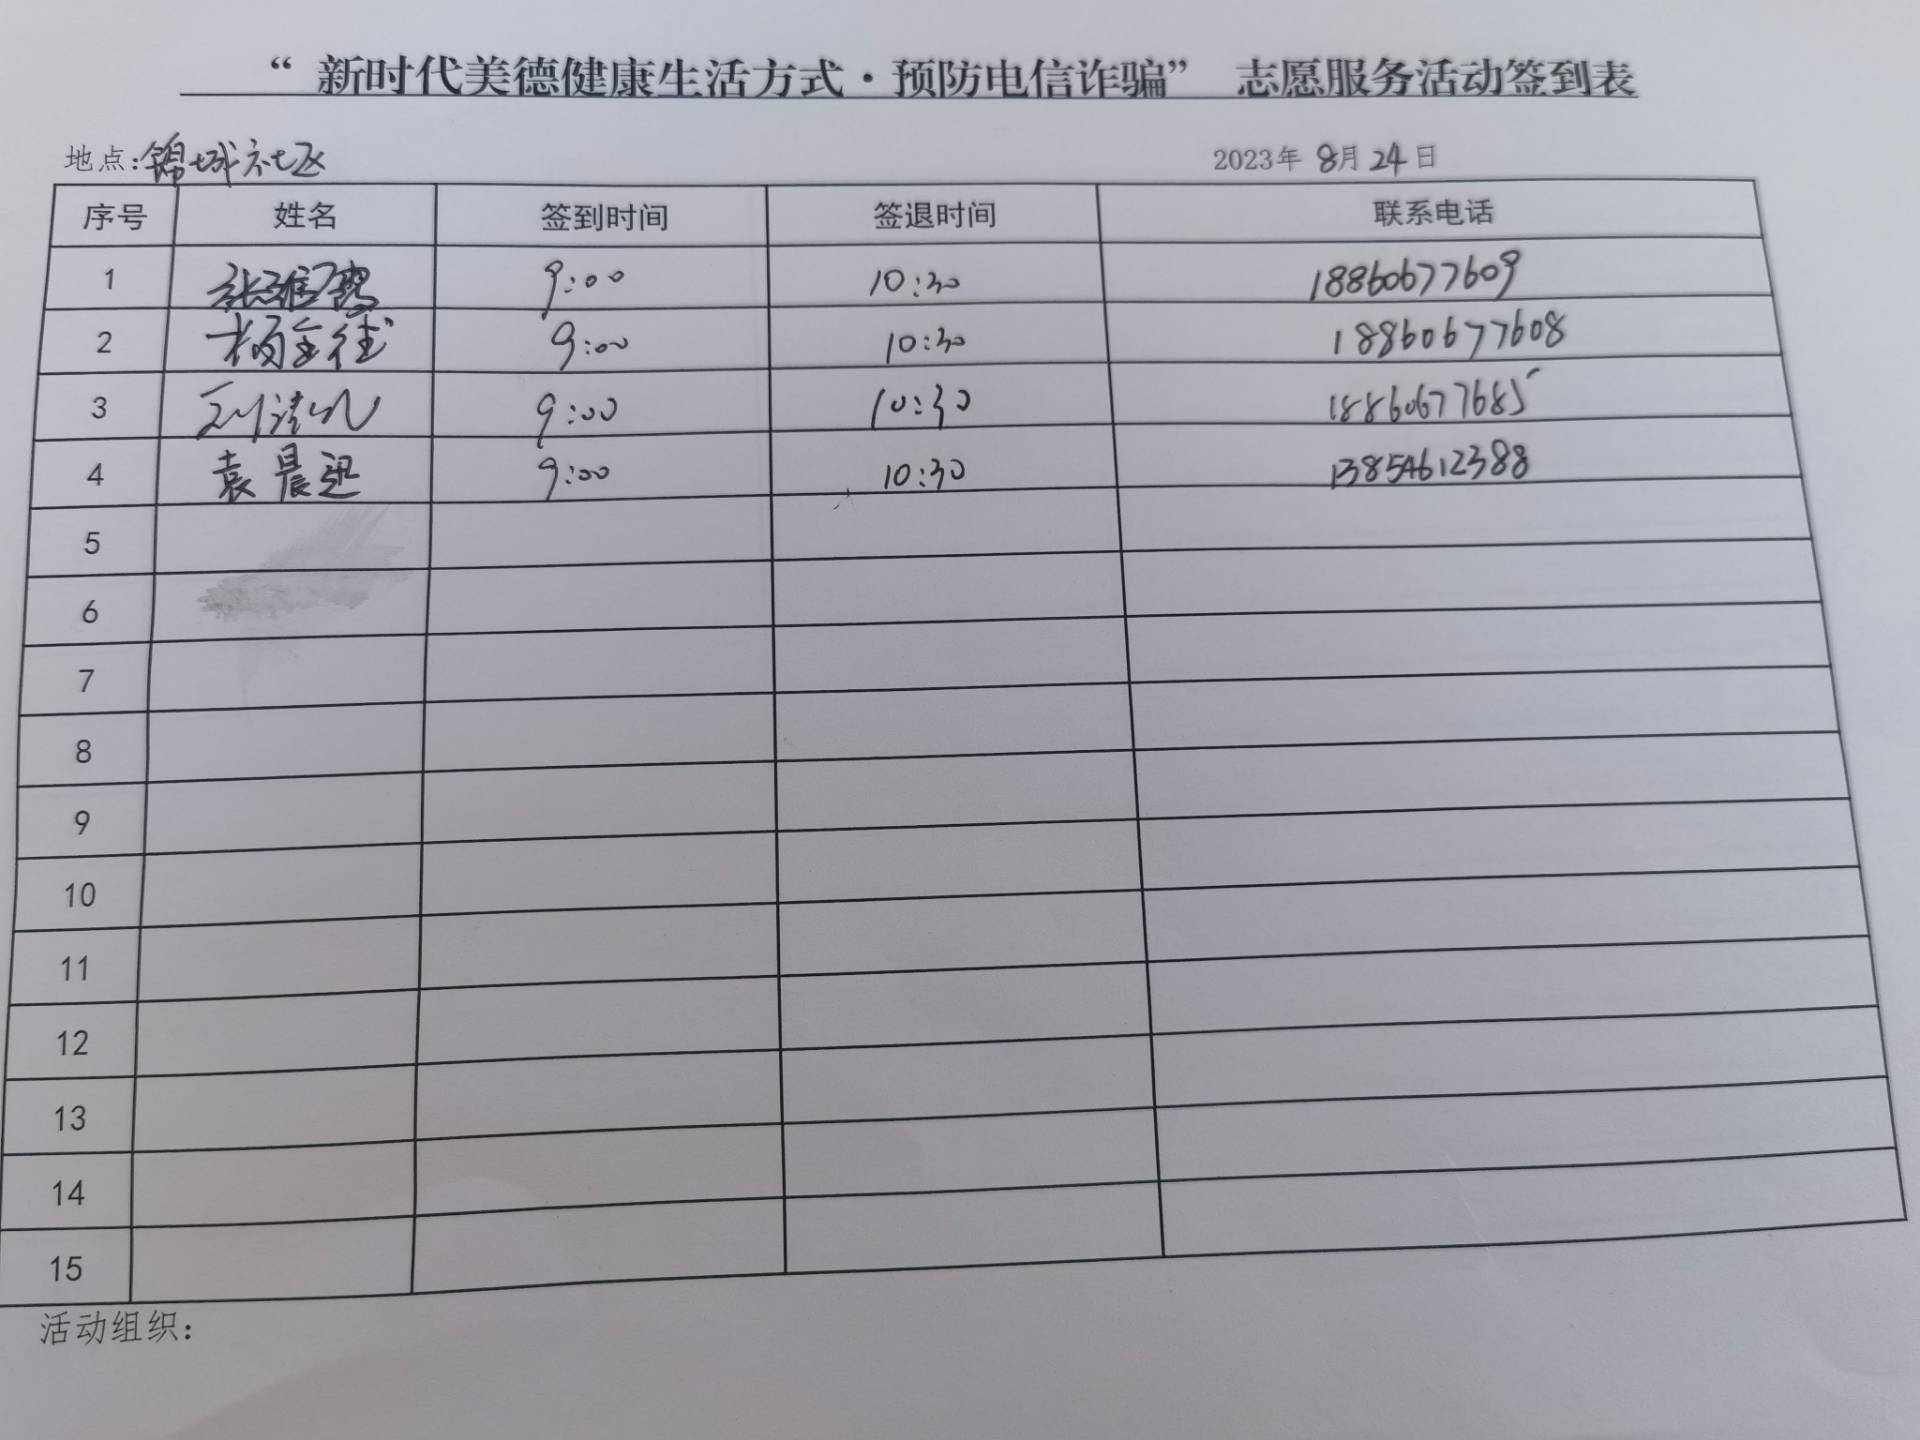 “新时代美德健康生活方式·预防电信诈骗” 志愿服务活动签到表
地点:锦城社区 2023年 8月 24日
序号 姓名 签到时间 签退时间 联系电话
1 9:00 10:30 18860677609
2 9:00 10:30 18860677608
3 9:00 10:30 18860677685
4 袁晨迅 9:00 10:30 13854612388
5
6
7
8
9
10
11
12
13
14
15
活动组织：